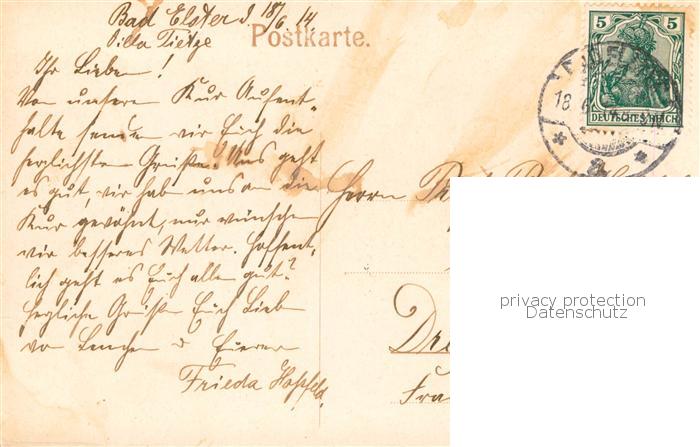 Bad Elster d. 18/6 14
Villa Tietze
Postkarte.
Ihr Lieben!
Von unserem Kur Aufent-
halte senden wir Euch die
herzlichsten Grüße. Uns geht
es gut, wir hab uns an die
Kur gewöhnt, nur wünschen
wir besseres Wetter. Hoffent-
lich geht es Euch allen gut?
Herzliche Grüße Euch Lieben
von Lenchen u Eurer
Frieda Hopfeld.
5 5
DEUTSCHES REICH
18.6
Herrn
Dre
Fra
privacy protection
Datenschutz